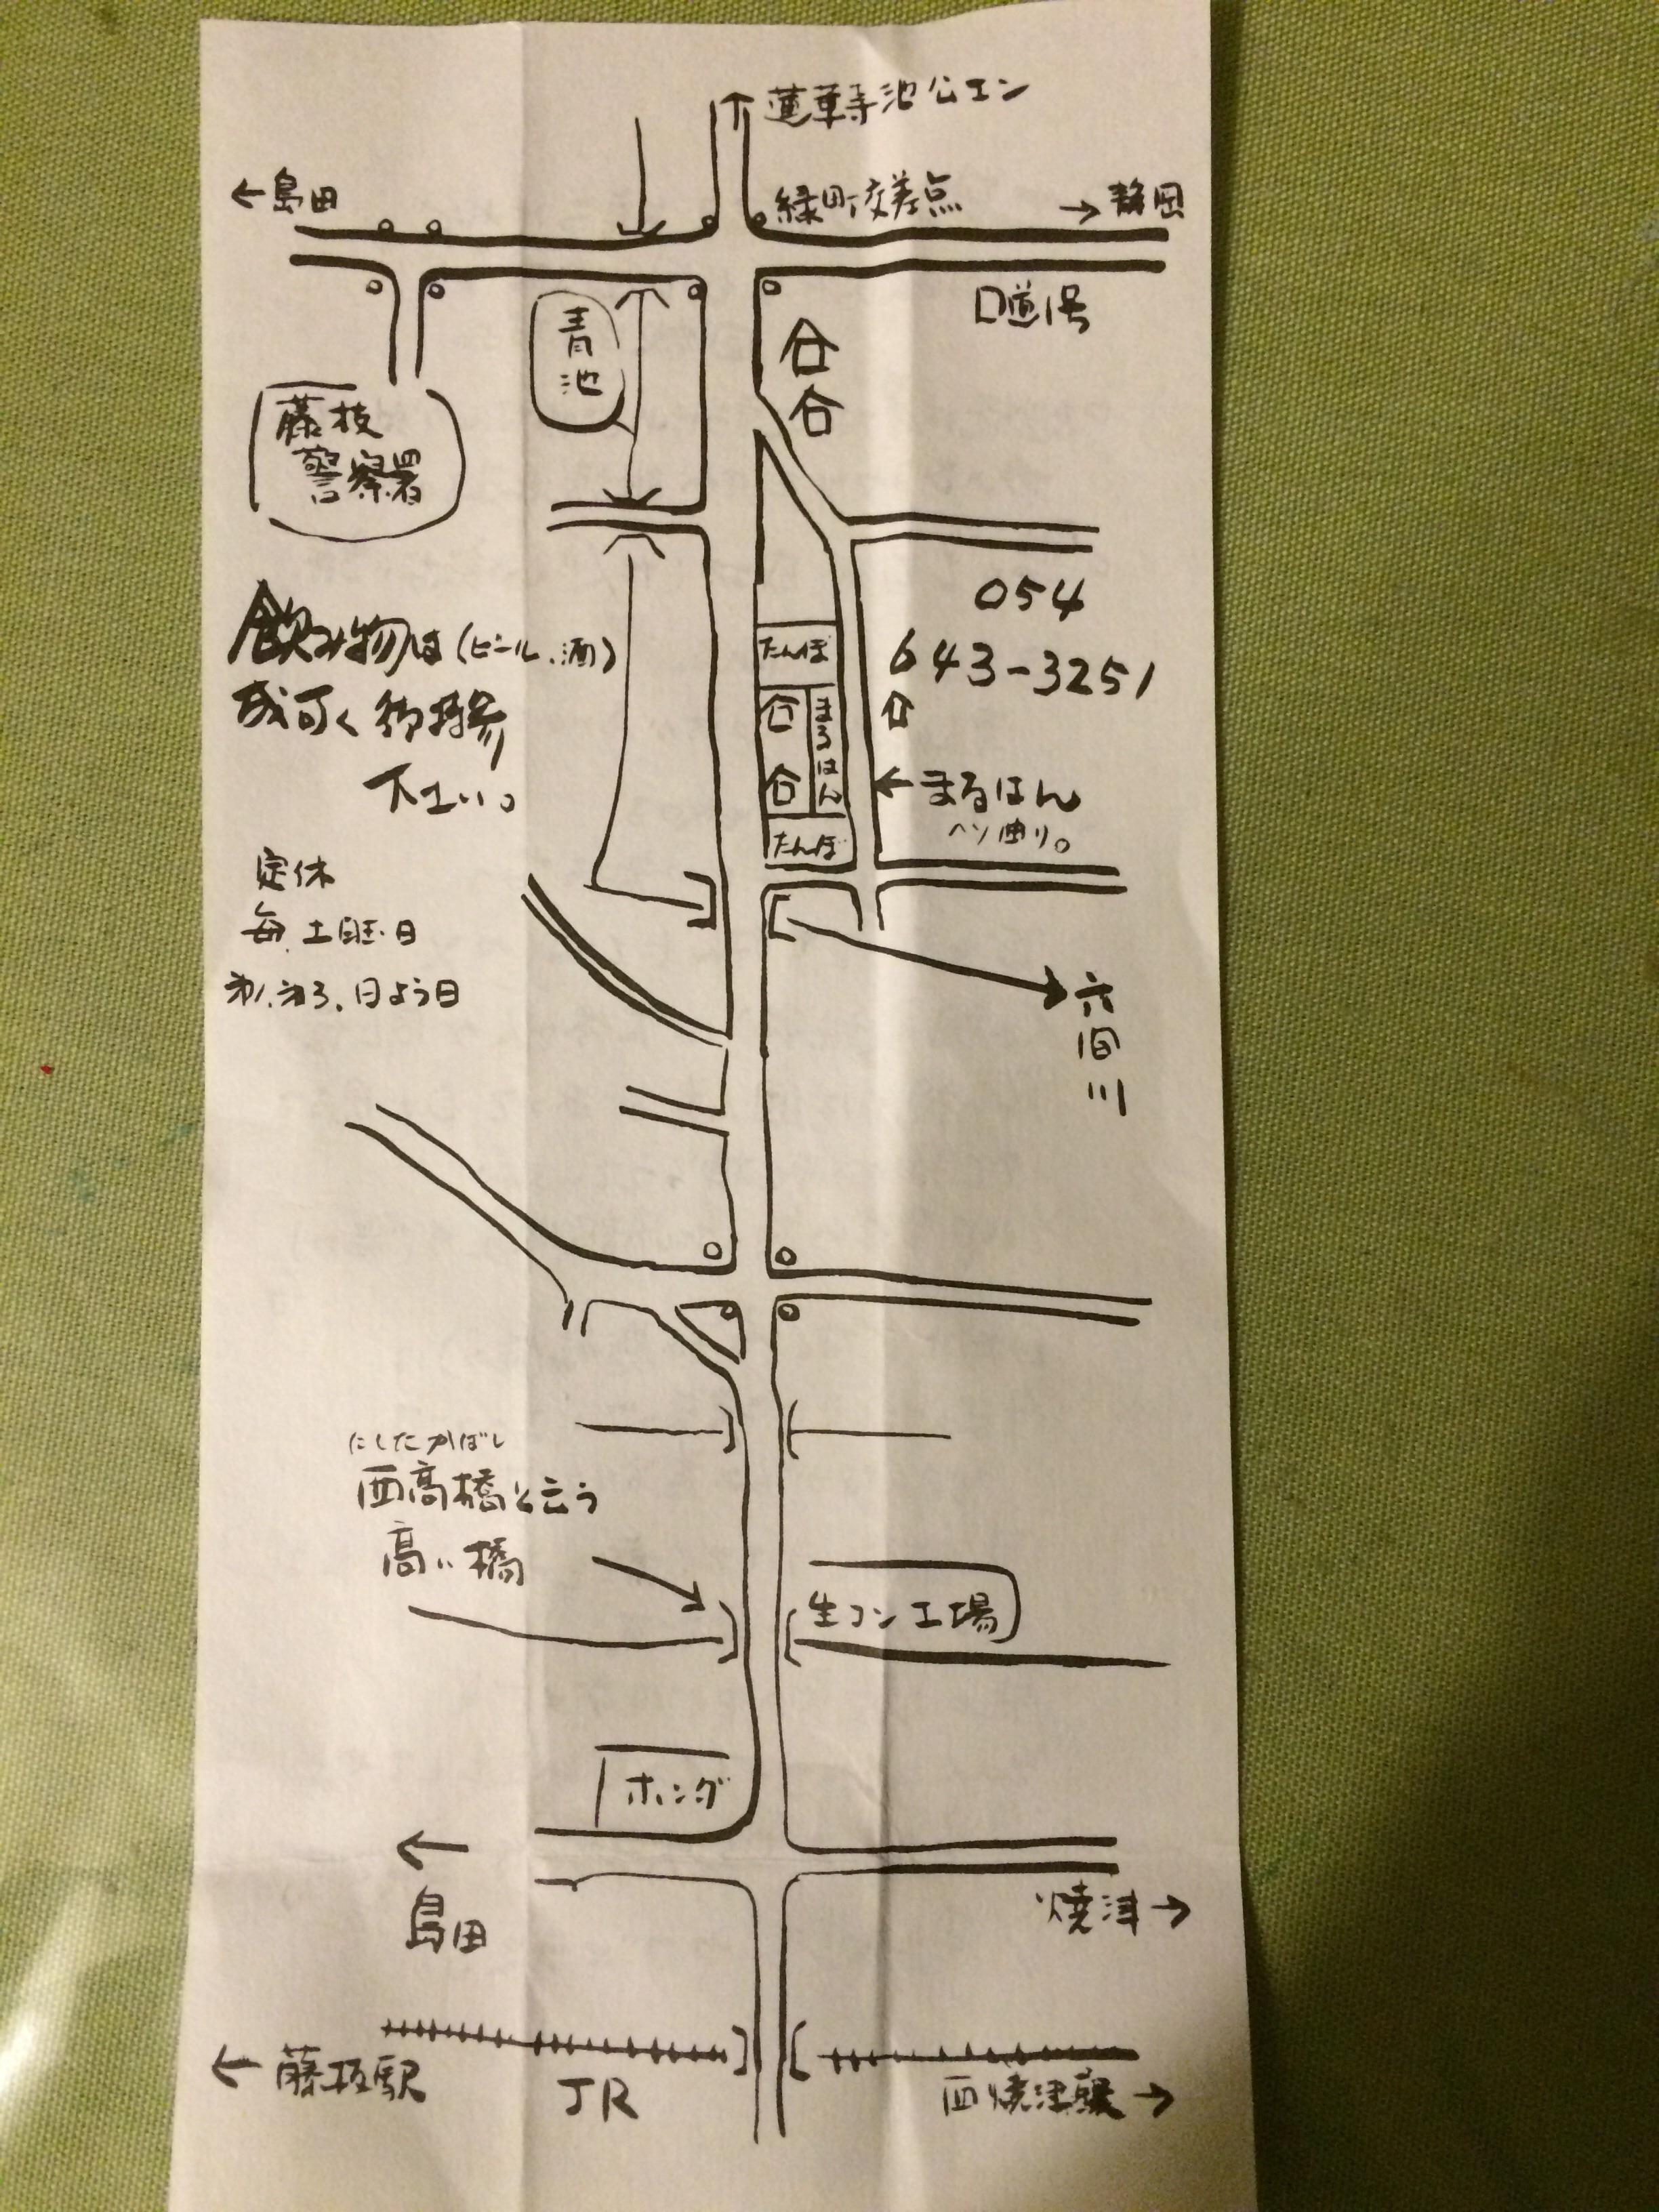 ↑蓮華寺池公エン
←島田
緑町交差点
→静岡
口道1号
青池
藤枝
警察署
054
643-3251
飲み物は(ビール、酒)
成可く御持参
下さい。
たんぼ
まるはん
←まるはん
ヘソ曲り。
たんぼ
定休
毎土曜日
第1.第3.日よう日
六間川
にしたかばし
西高橋と云う
高い橋
生コン工場
ホンダ
←
島田
焼津→
←藤枝駅
JR
西焼津駅→